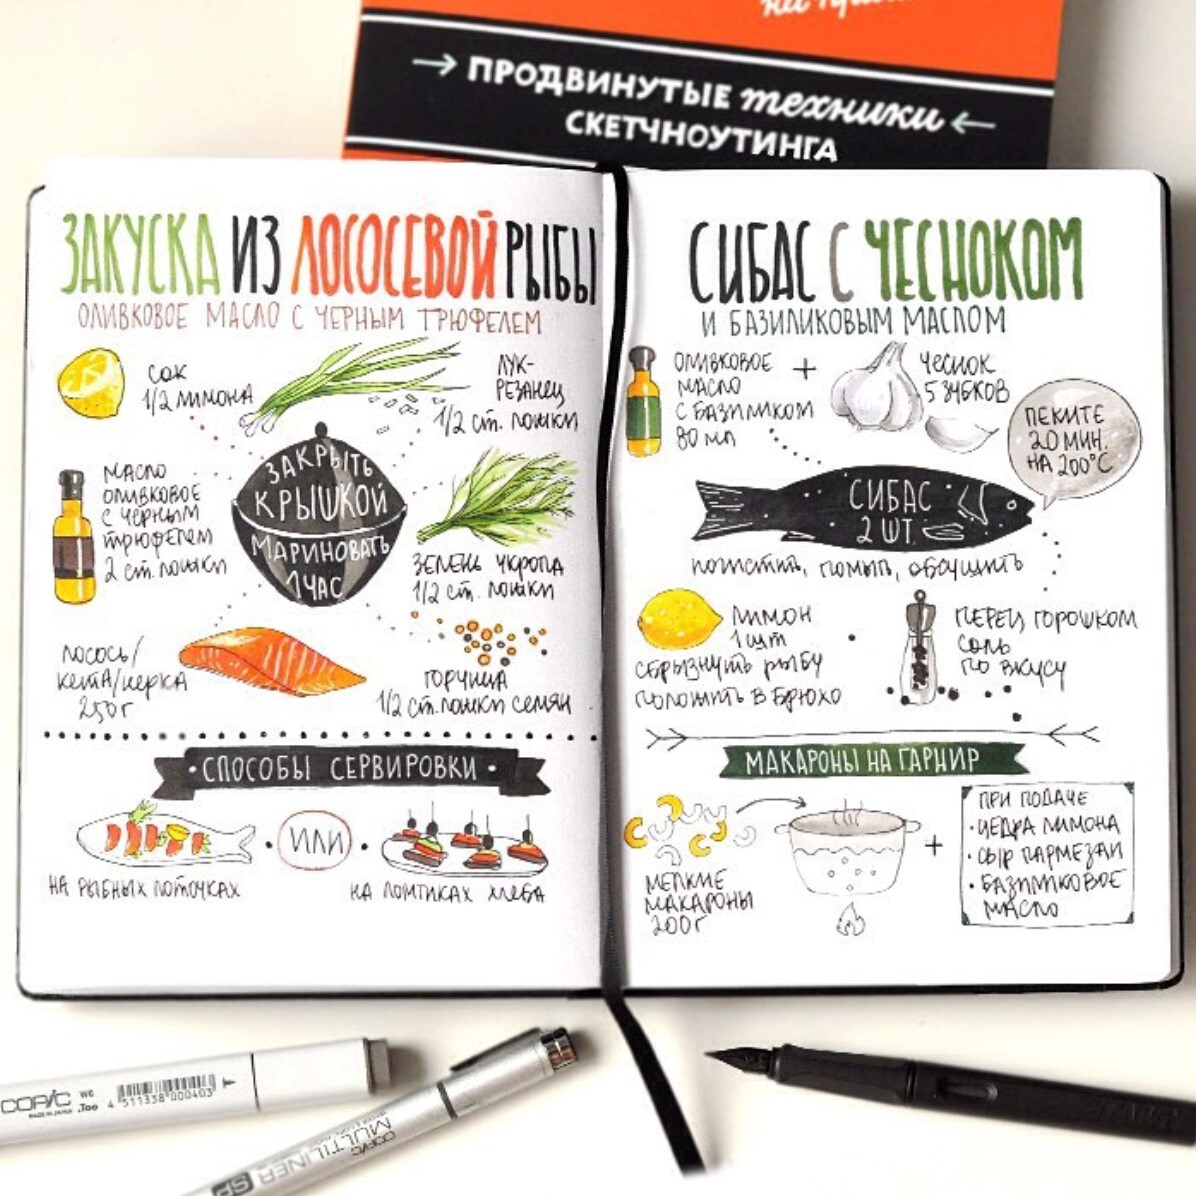 → ПРОДВИНУТЫЕ техники ←
СКЕТЧНОУТИНГА
ЗАКУСКА ИЗ ЛОСОСЕВОЙ РЫБЫ
ОЛИВКОВОЕ МАСЛО С ЧЕРНЫМ ТРЮФЕЛЕМ
СОК
1/2 ЛИМОНА
ЛУК-
РЕЗАНЕЦ
1/2 СТ. ЛОЖКИ
МАСЛО
ОЛИВКОВОЕ
С ЧЕРНЫМ
ТРЮФЕЛЕМ
2 СТ. ЛОЖКИ
ЗАКРЫТЬ
КРЫШКОЙ
МАРИНОВАТЬ
1 ЧАС
ЗЕЛЕНЬ УКРОПА
1/2 СТ. ЛОЖКИ
ЛОСОСЬ/
КЕТА/НЕРКА
250 Г
ГОРЧИЦА
1/2 СТ. ЛОЖКИ СЕМЯН
• СПОСОБЫ СЕРВИРОВКИ •
• ИЛИ •
НА РЫБНЫХ ЛОТОЧКАХ
НА ЛОМТИКАХ ХЛЕБА
СИБАС С ЧЕСНОКОМ
И БАЗИЛИКОВЫМ МАСЛОМ
ОЛИВКОВОЕ
МАСЛО
С БАЗИЛИКОМ
80 МЛ
+
ЧЕСНОК
5 ЗУБКОВ
ПЕКИТЕ
20 МИН.
НА 200°C
СИБАС
2 ШТ.
ПОЧИСТИТЬ, ПОМЫТЬ, ОБСУШИТЬ
ЛИМОН
1 ШТ
СБРЫЗНУТЬ РЫБУ
ПОЛОЖИТЬ В БРЮХО
ПЕРЕЦ ГОРОШКОМ
СОЛЬ
ПО ВКУСУ
МАКАРОНЫ НА ГАРНИР
МЕЛКИЕ
МАКАРОНЫ
200 Г
+
ПРИ ПОДАЧЕ
• ЦЕДРА ЛИМОНА
• СЫР ПАРМЕЗАН
• БАЗИЛИКОВОЕ
МАСЛО
COPIC W6
MADE IN JAPAN .Too 4 511338 000403 T
COPIC
MULTILINER SP